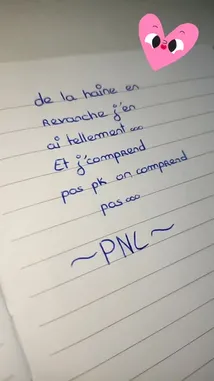 de la haine en
Revanche j'en
ai tellement...
Et j'comprend
pas pk on comprend
pas...
~PNL~